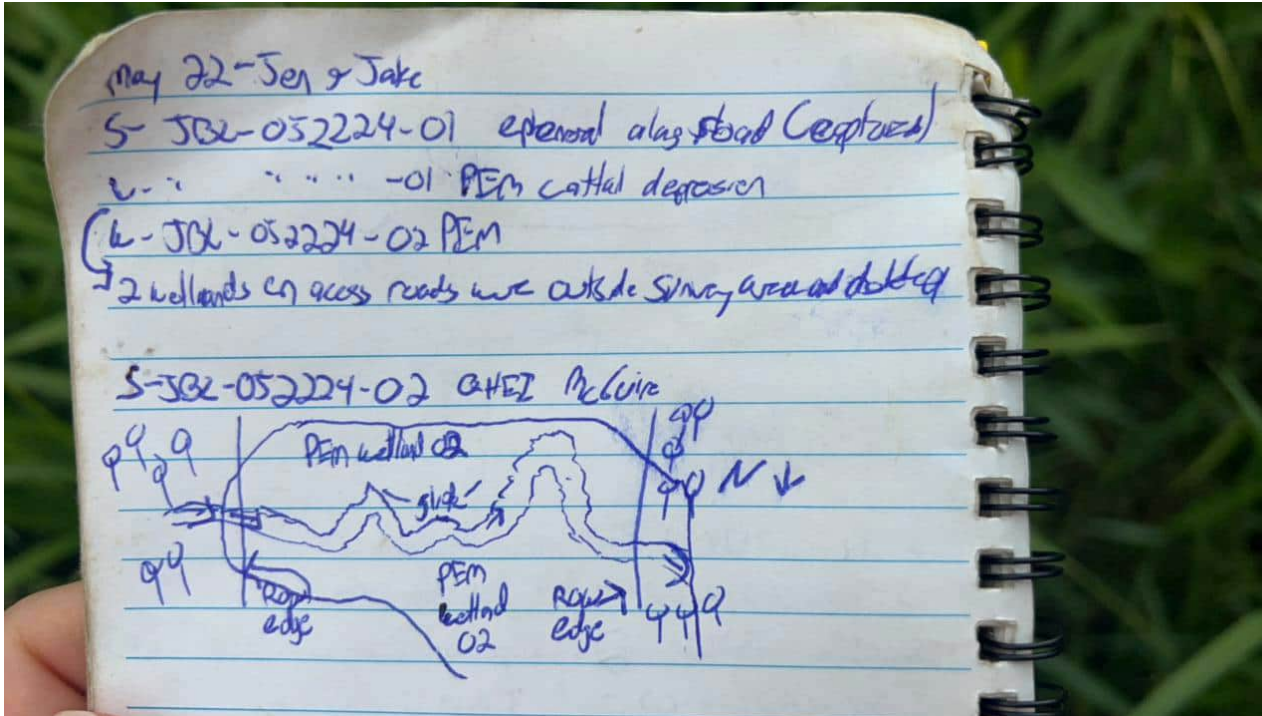 May 22 - Jen & Jake
S- JBL-052224-01 ephemeral along road
W- " " " " " -01 PEM cattail depression
W- JBL-052224-02 PEM
2 wetlands on access roads were outside survey area and
S-JBL-052224-02 QHEI McGuire
PEM wetland 02
glide
N ↓
PEM
wetland
02
ROW
edge
ROW
edge